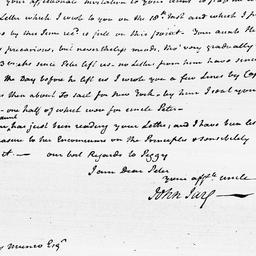 your affectionate invitation to your Aunt to pass the
Letter which I wrote to you on the 18th Inst and which I p
by this time recd. is full on this Point. Your Aunts He
precarious, but nevertheless mends, tho' very gradually
Breaks since Peter left us. no Letter from him have since
The Day before he left us I wrote you a few Lines by Cap
then about to sail for New York. by him I sent you
- one half of which were for uncle Peter -
Aunt
has just been reading your Letter, and I have been let
to her Encomiums on the Principles & sensibility
it. - our best Regards to Peggy
I am Dear Peter
your affte. uncle
John Jay -
Munro Esqr